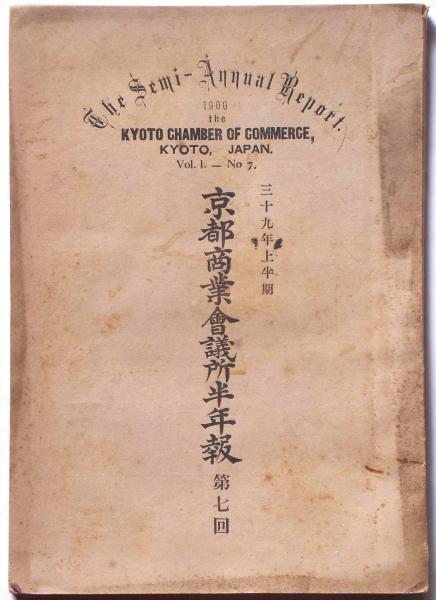 The Semi-Annual Report.
1906
the
KYOTO CHAMBER OF COMMERCE,
KYOTO, JAPAN.
Vol. 1. — No 7.
三十九年上半期
京都商業會議所半年報
第七回